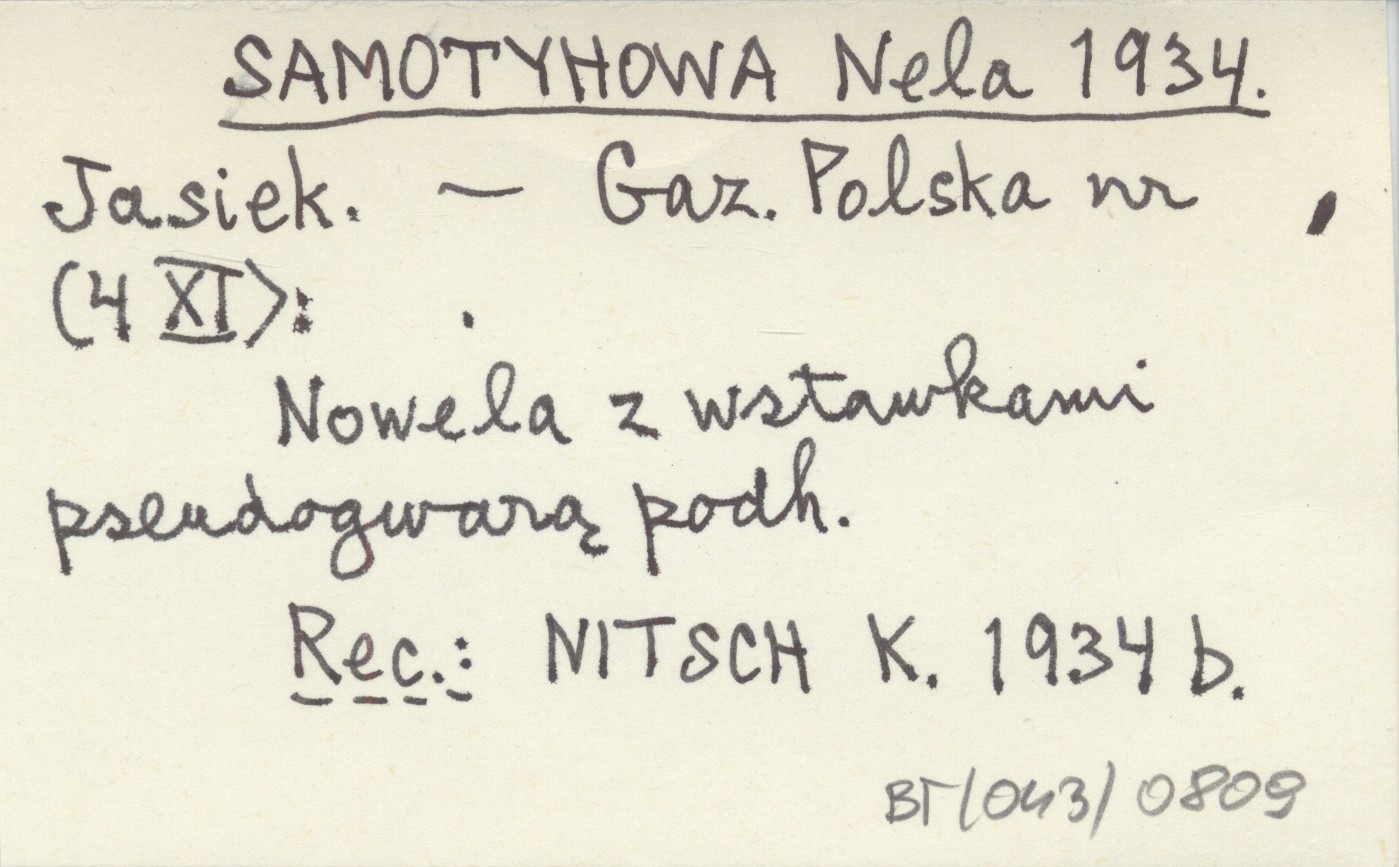 SAMOTYHOWA Nela 1934.
Jasiek. — Gaz. Polska nr ,
(4 XI): .
Nowela z wstawkami
pseudogwarą podh.
Rec.: NITSCH K. 1934 b.
BΓ/043/0809